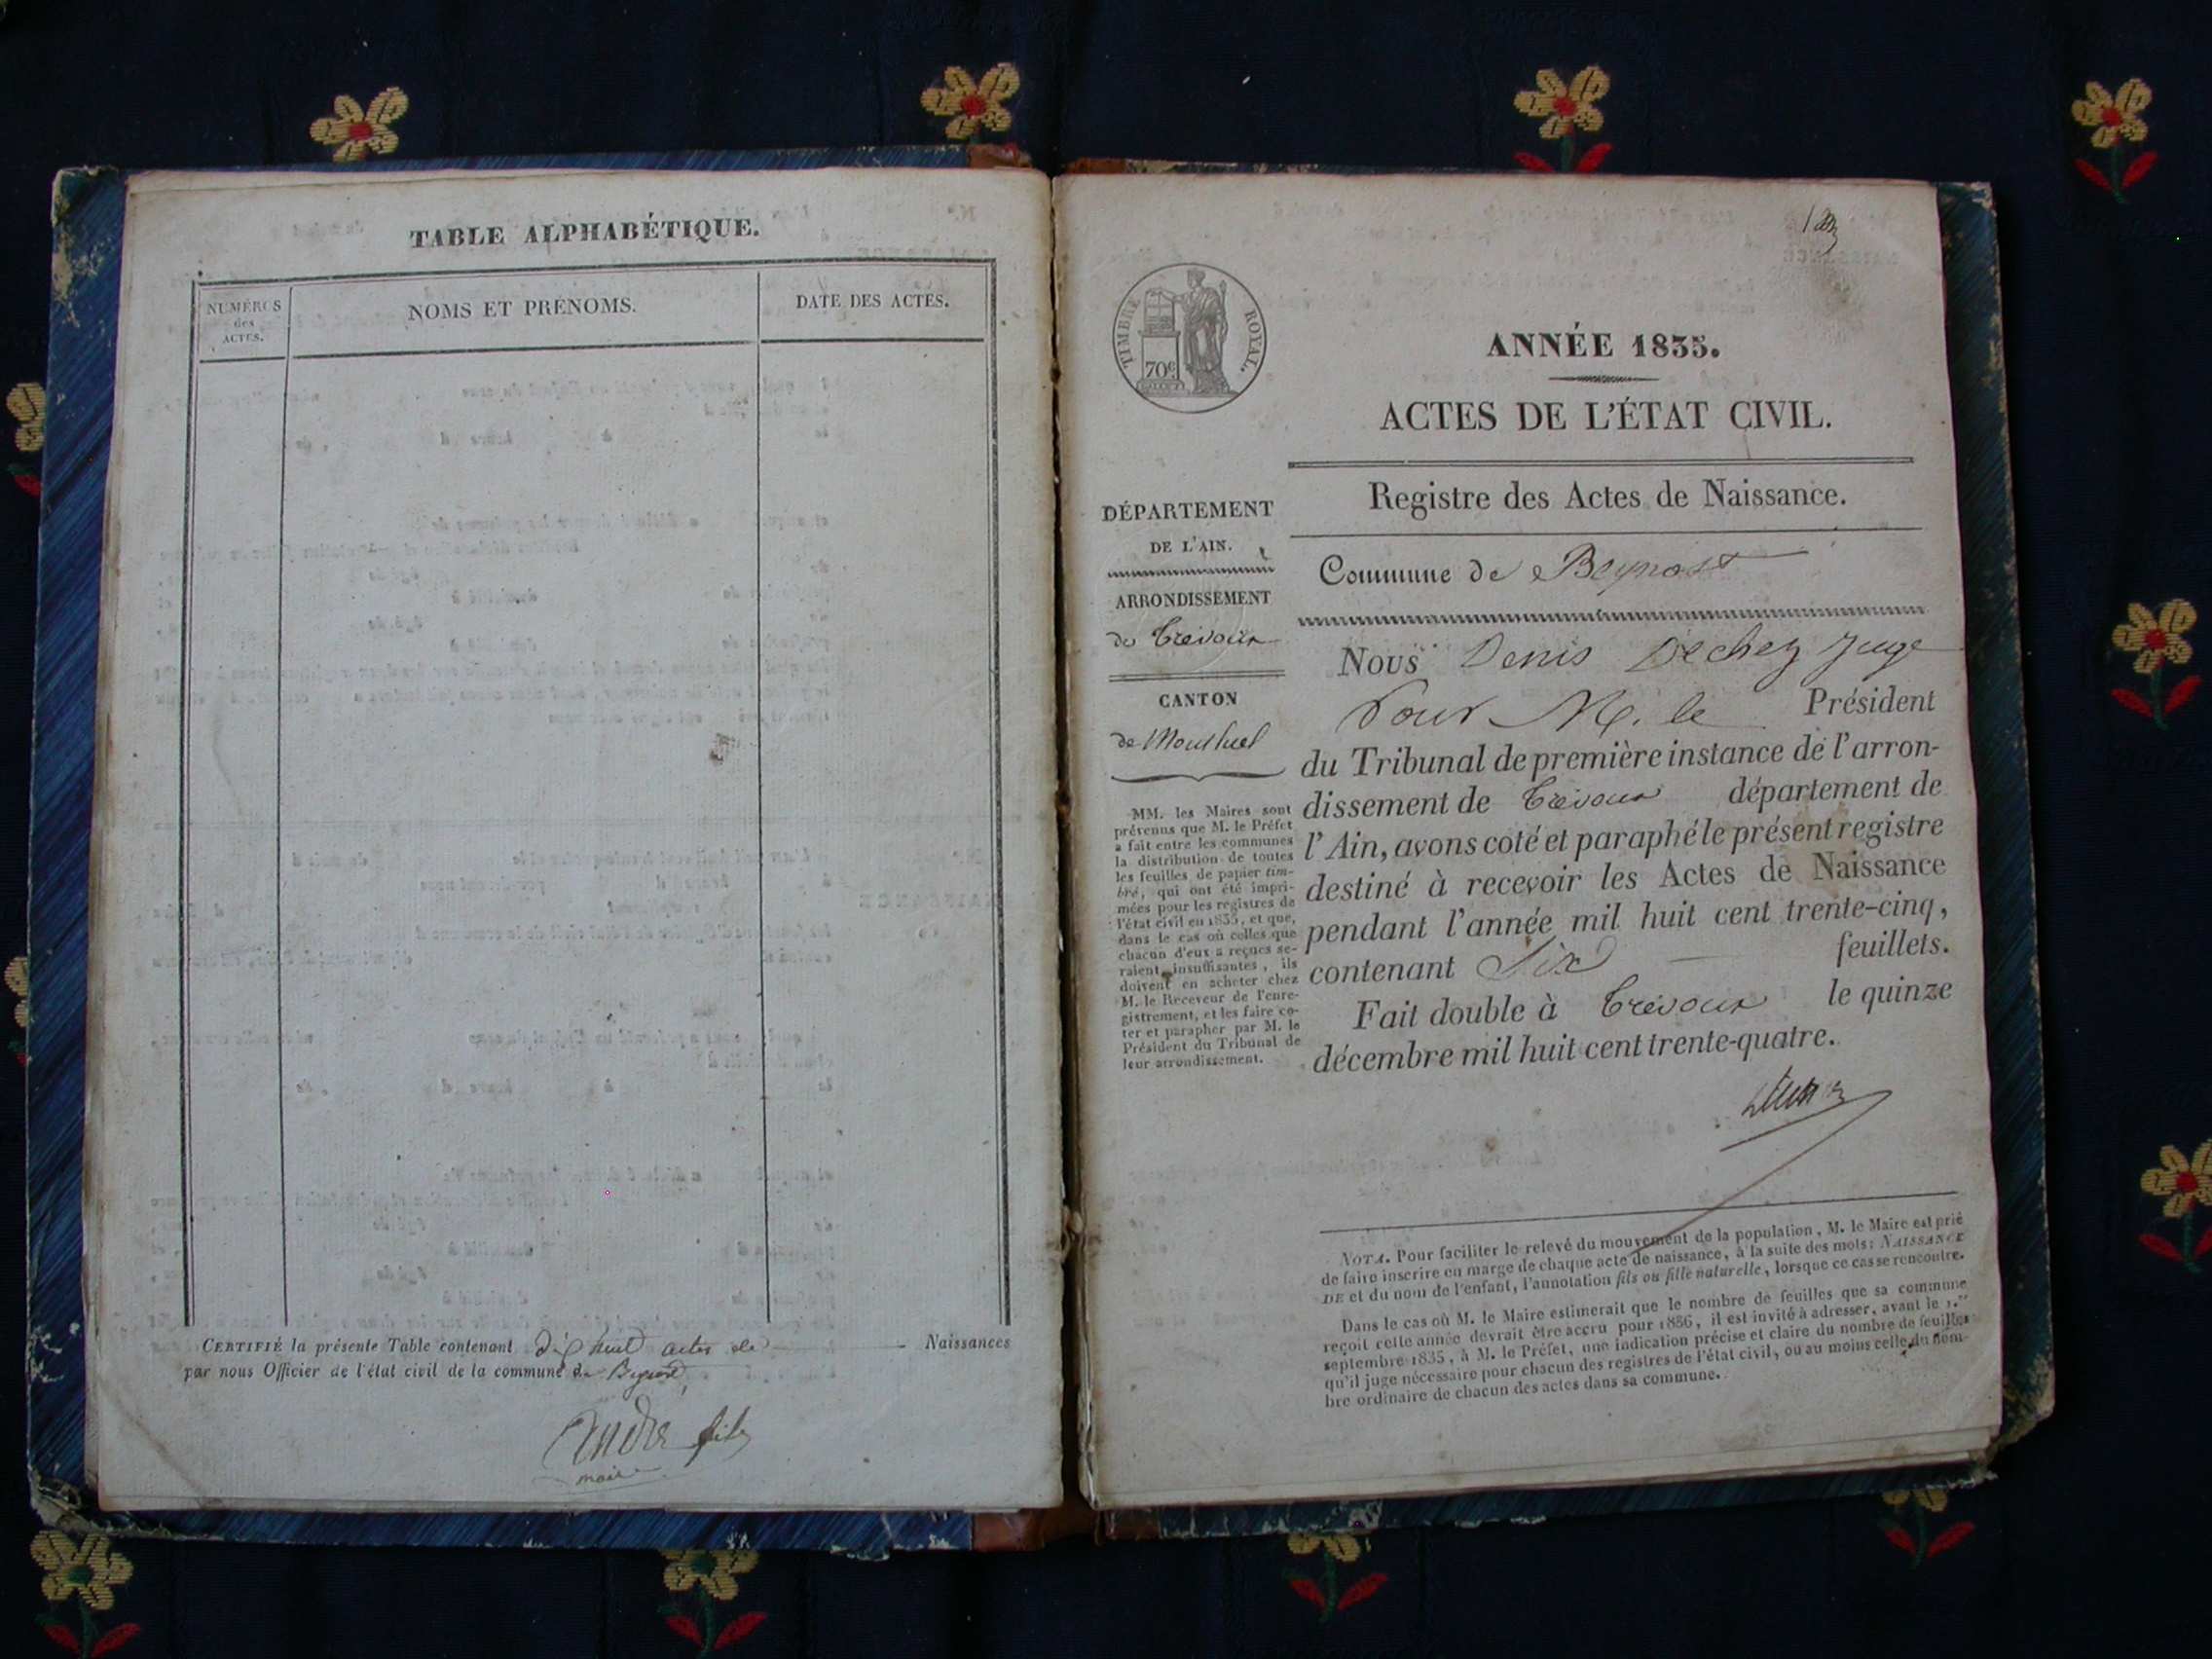 TABLE ALPHABÉTIQUE.
NUMÉROS
des
ACTES.
NOMS ET PRÉNOMS.
DATE DES ACTES.
CERTIFIÉ la présente Table contenant dix huit actes de Naissances
par nous Officier de l'état civil de la commune de Beynost
André fils
maire
TIMBRE ROYAL.
70c
ANNÉE 1835.
ACTES DE L'ÉTAT CIVIL.
Registre des Actes de Naissance.
DÉPARTEMENT
DE L'AIN.
ARRONDISSEMENT
de Trévoux
CANTON
de Montluel
MM. les Maires sont
prévenus que M. le Préfet
a fait entre les communes
la distribution de toutes
les feuilles de papier tim-
bré, qui ont été impri-
mées pour les registres de
l'état civil en 1835, et que,
dans le cas où celles que
chacun d'eux a reçues se-
raient insuffisantes, ils
doivent en acheter chez
M. le Receveur de l'enre-
gistrement, et les faire co-
ter et parapher par M. le
Président du Tribunal de
leur arrondissement.
Commune de Beynost
Nous Denis Dechez Juge
Pour M. le Président
du Tribunal de première instance de l'arron-
dissement de Trévoux département de
l'Ain, avons coté et paraphé le présent registre
destiné à recevoir les Actes de Naissance
pendant l'année mil huit cent trente-cinq,
contenant Six feuillets.
Fait double à Trévoux le quinze
décembre mil huit cent trente-quatre.
NOTA. Pour faciliter le relevé du mouvement de la population, M. le Maire est prié
de faire inscrire en marge de chaque acte de naissance, à la suite des mots: NAISSANCE
DE et du nom de l'enfant, l'annotation fils ou fille naturelle, lorsque ce cas se rencontre.
Dans le cas où M. le Maire estimerait que le nombre de feuilles que sa commune
reçoit cette année devrait être accru pour 1836, il est invité à adresser, avant le 1.er
septembre 1835, à M. le Préfet, une indication précise et claire du nombre de feuilles
qu'il juge nécessaire pour chacun des registres de l'état civil, ou au moins celle du nom-
bre ordinaire de chacun des actes dans sa commune.